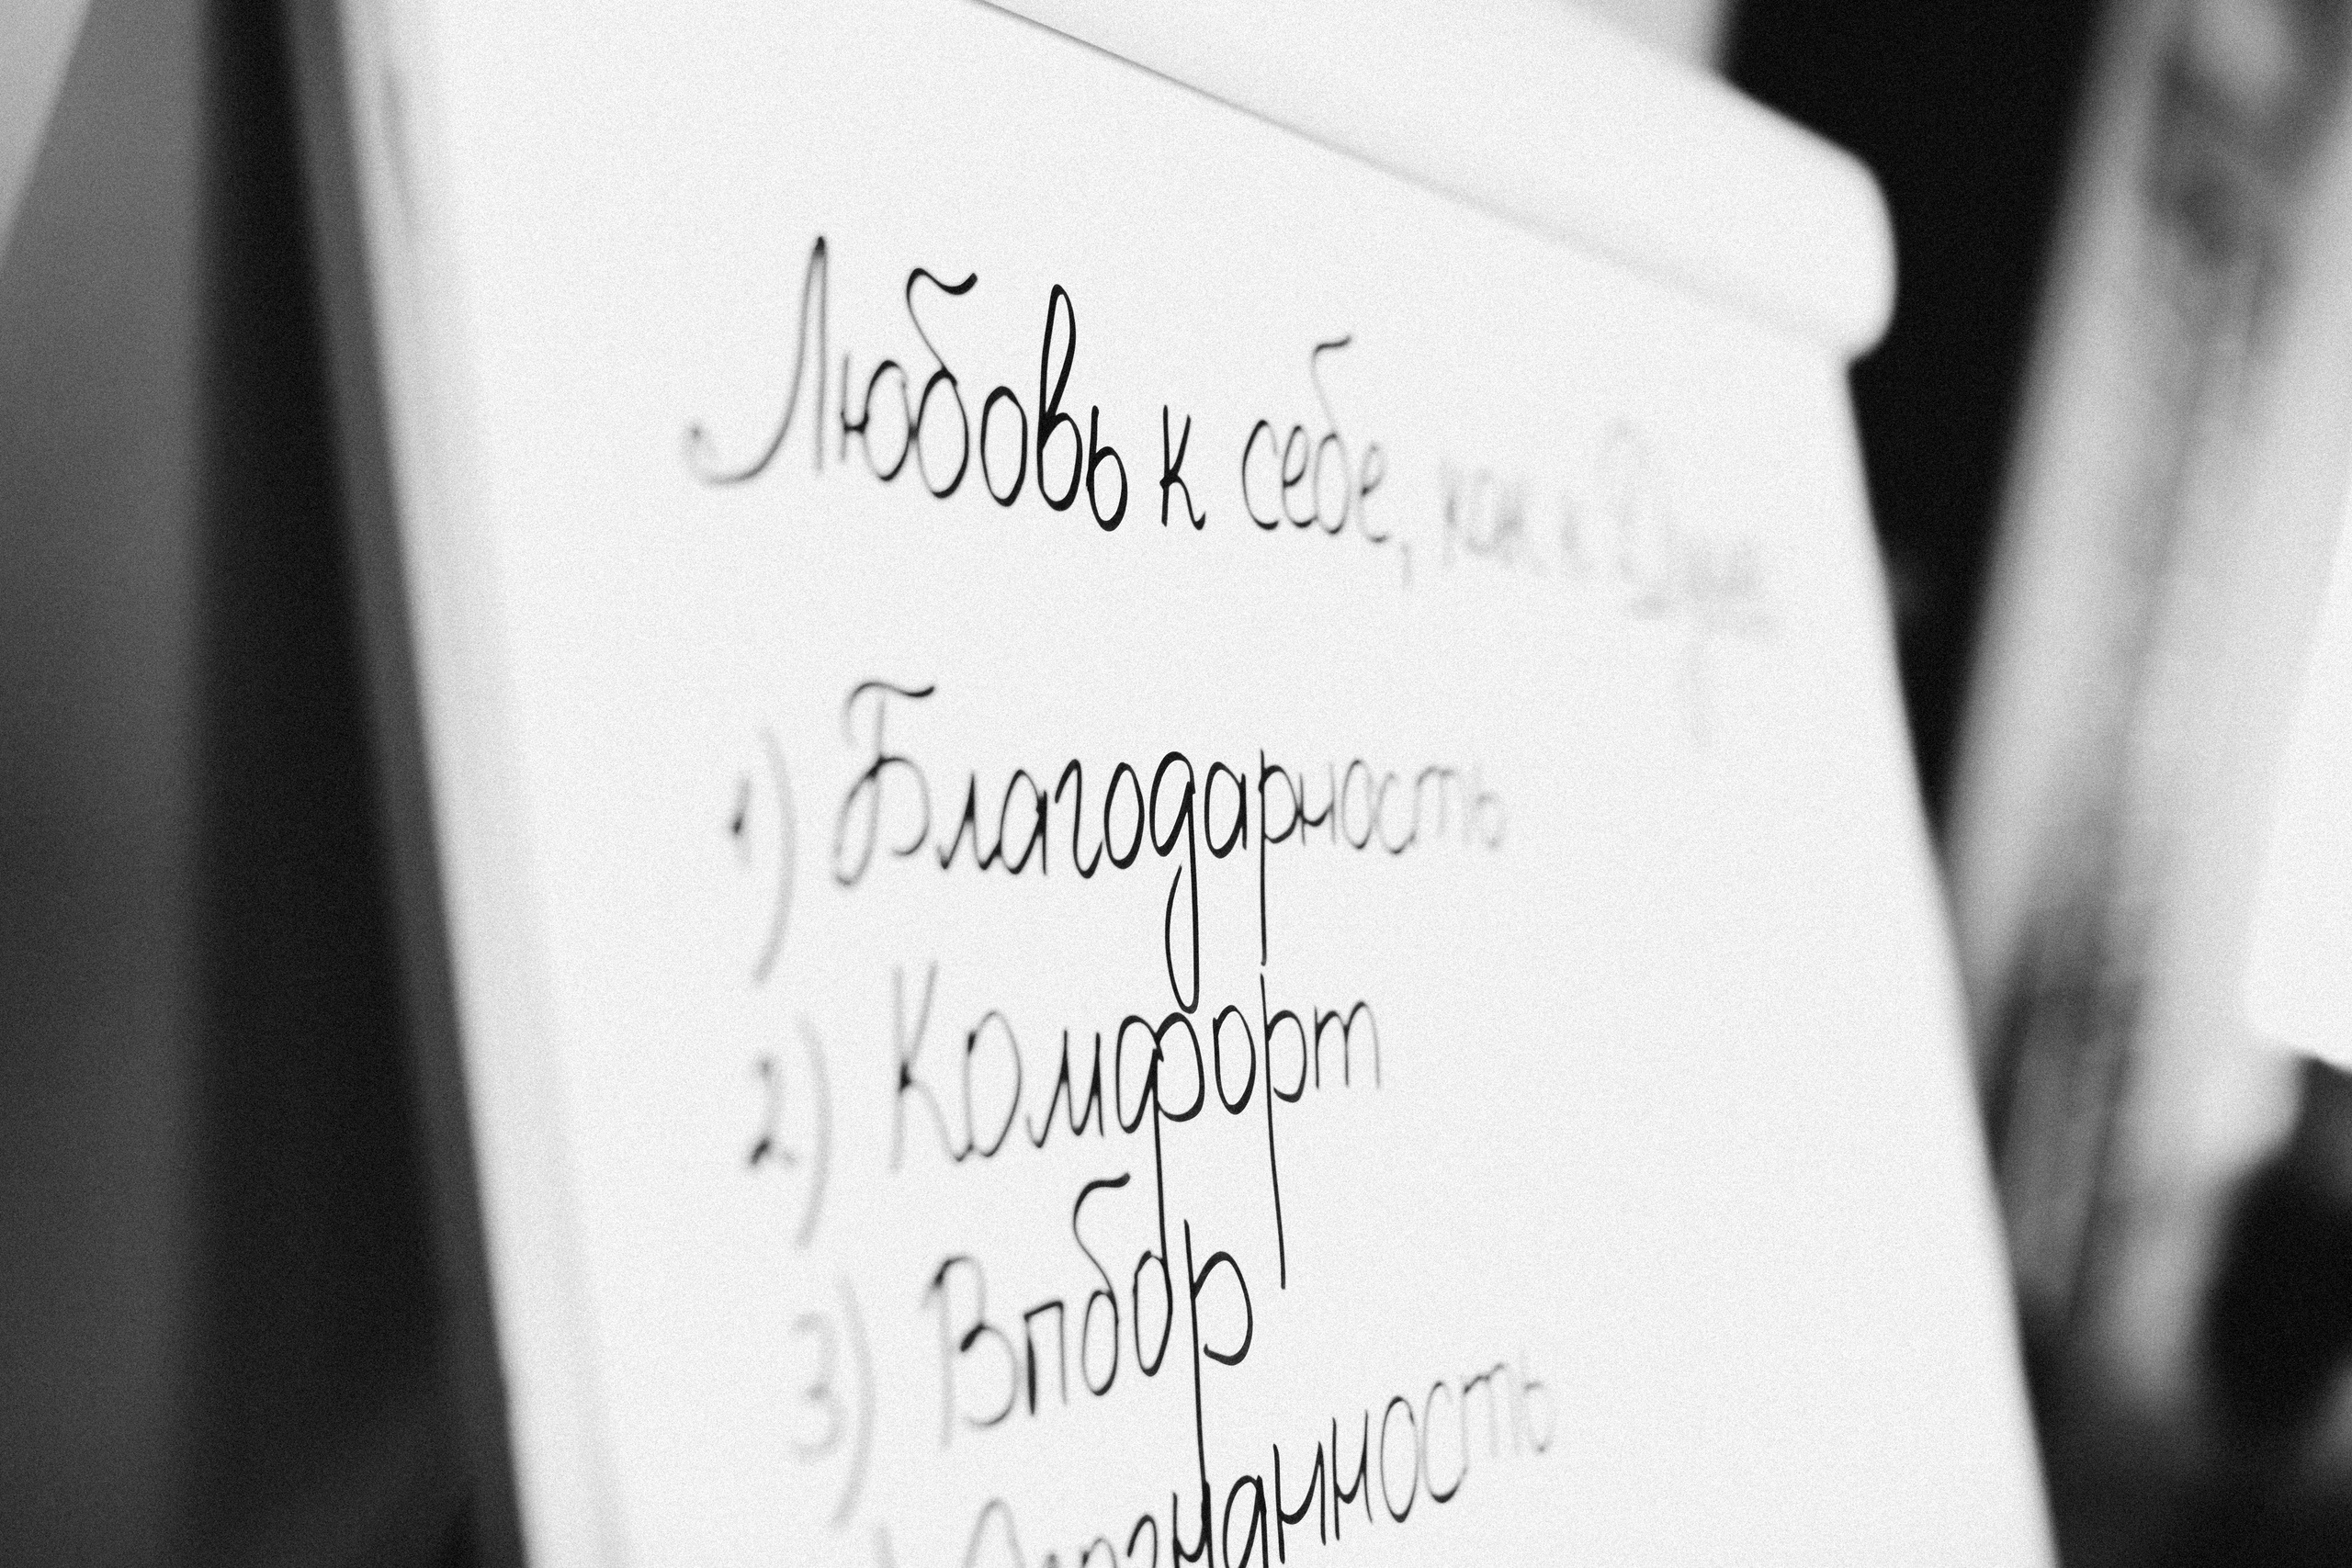 Любовь к себе, как к
1) Благодарность
2) Комфорт
3) Впбор
Осознанность